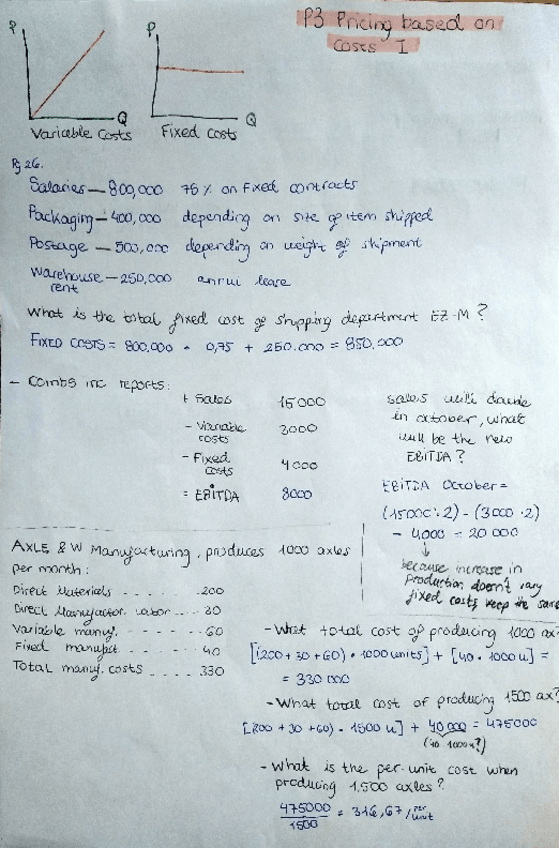 P3 Pricing based on
Costs I
P
Q
Variable Costs
P
Q
Fixed Costs
Pg 26.
Salaries — 800,000 75% on Fixed contracts
Packaging — 400,000 depending on size of item shipped
Postage — 500,000 depending on weight of shipment
Warehouse — 250,000 annual lease
rent
What is the total fixed cost of shipping department EZ-M?
FIXED COSTS = 800.000 · 0,75 + 250.000 = 850.000
- Combs inc reports:
+ Sales 15000
- Variable 3000
costs
- Fixed 4000
costs
= EBITDA 8000
Sales will double
in october, what
will be the new
EBITDA?
EBITDA October =
(15000·2) - (3000·2)
- 4000 = 20 000
because increase in
production doesn't vary
fixed costs keep the same
AXLE & W Manufacturing, produces 1000 axles
per month:
Direct Materials . . . . . . 200
Direct Manufactor. labor . . . 30
Variable manuf. - - - - - - 60
Fixed manufact. . . . . . . 40
Total manuf. costs . . . . 330
- What total cost of producing 1000 ax
[(200 + 30 + 60) · 1000 units] + [40 · 1000 u] =
= 330 000
- What total cost of producing 1500 ax?
[200 + 30 + 60) · 1500 u] + 40 000 = 475000
(40 · 1000 u?)
- What is the per-unit cost when
producing 1,500 axles?
475000
1500
= 316,67 / per
unit